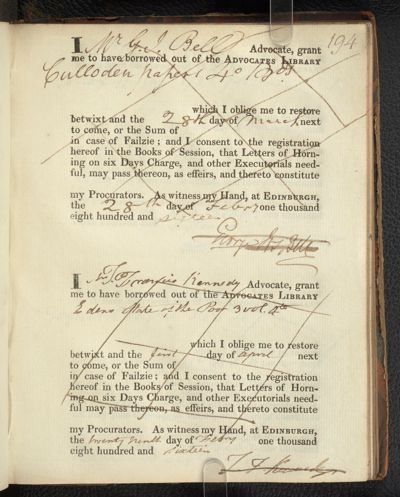 194
I Mr G. J. Bell Advocate, grant
me to have borrowed out of the ADVOCATES LIBRARY
Culloden papers 4o
which I oblige me to restore
betwixt and the 28th day of March next
to come, or the Sum of
in case of Failzie; and I consent to the registration
hereof in the Books of Session, that Letters of Horn-
ing on six Days Charge, and other Executorials need-
ful, may pass thereon, as effeirs, and thereto constitute
my Procurators. As witness my Hand, at EDINBURGH,
the 28th day of Feby one thousand
eight hundred and sixteen
I Mr Kennedy Advocate, grant
me to have borrowed out of the ADVOCATES LIBRARY
Edens State of the Poor 3 vol. 4to
which I oblige me to restore
betwixt and the first day of april next
to come, or the Sum of
in case of Failzie; and I consent to the registration
hereof in the Books of Session, that Letters of Horn-
ing on six Days Charge, and other Executorials need-
ful may pass thereon, as effeirs, and thereto constitute
my Procurators. As witness my Hand, at EDINBURGH,
the twenty ninth day of Feby one thousand
eight hundred and sixteen
T F Kennedy